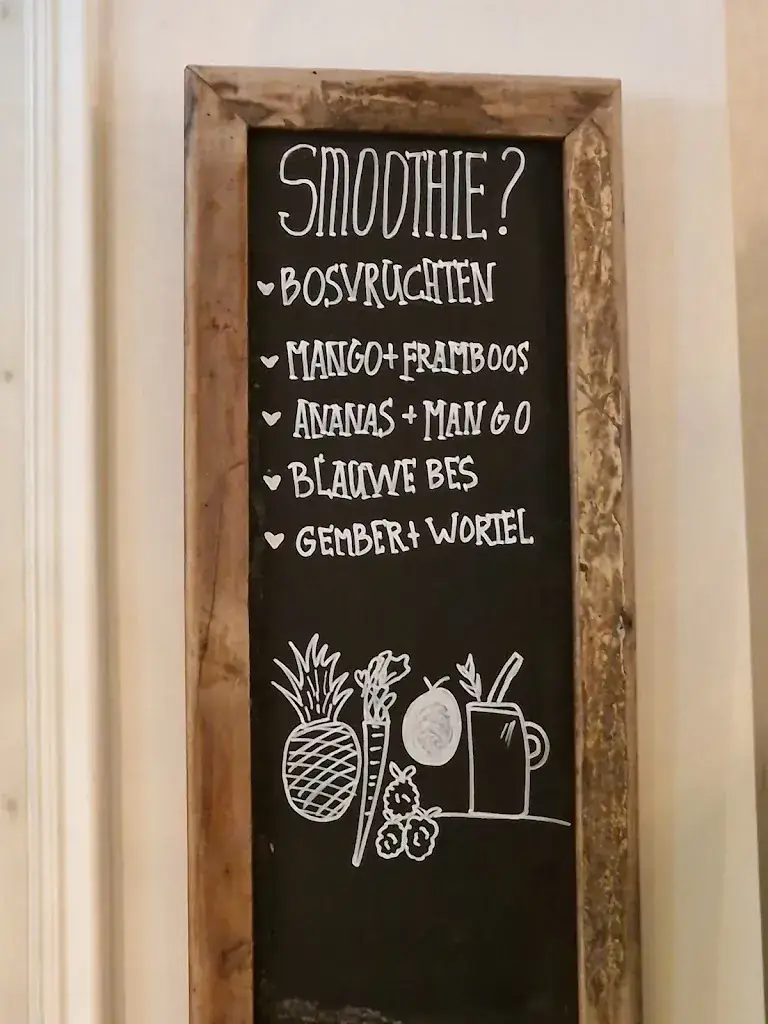 SMOOTHIE?
BOSVRUCHTEN
MANGO+FRAMBOOS
ANANAS + MANGO
BLAUWE BES
GEMBER+ WORTEL